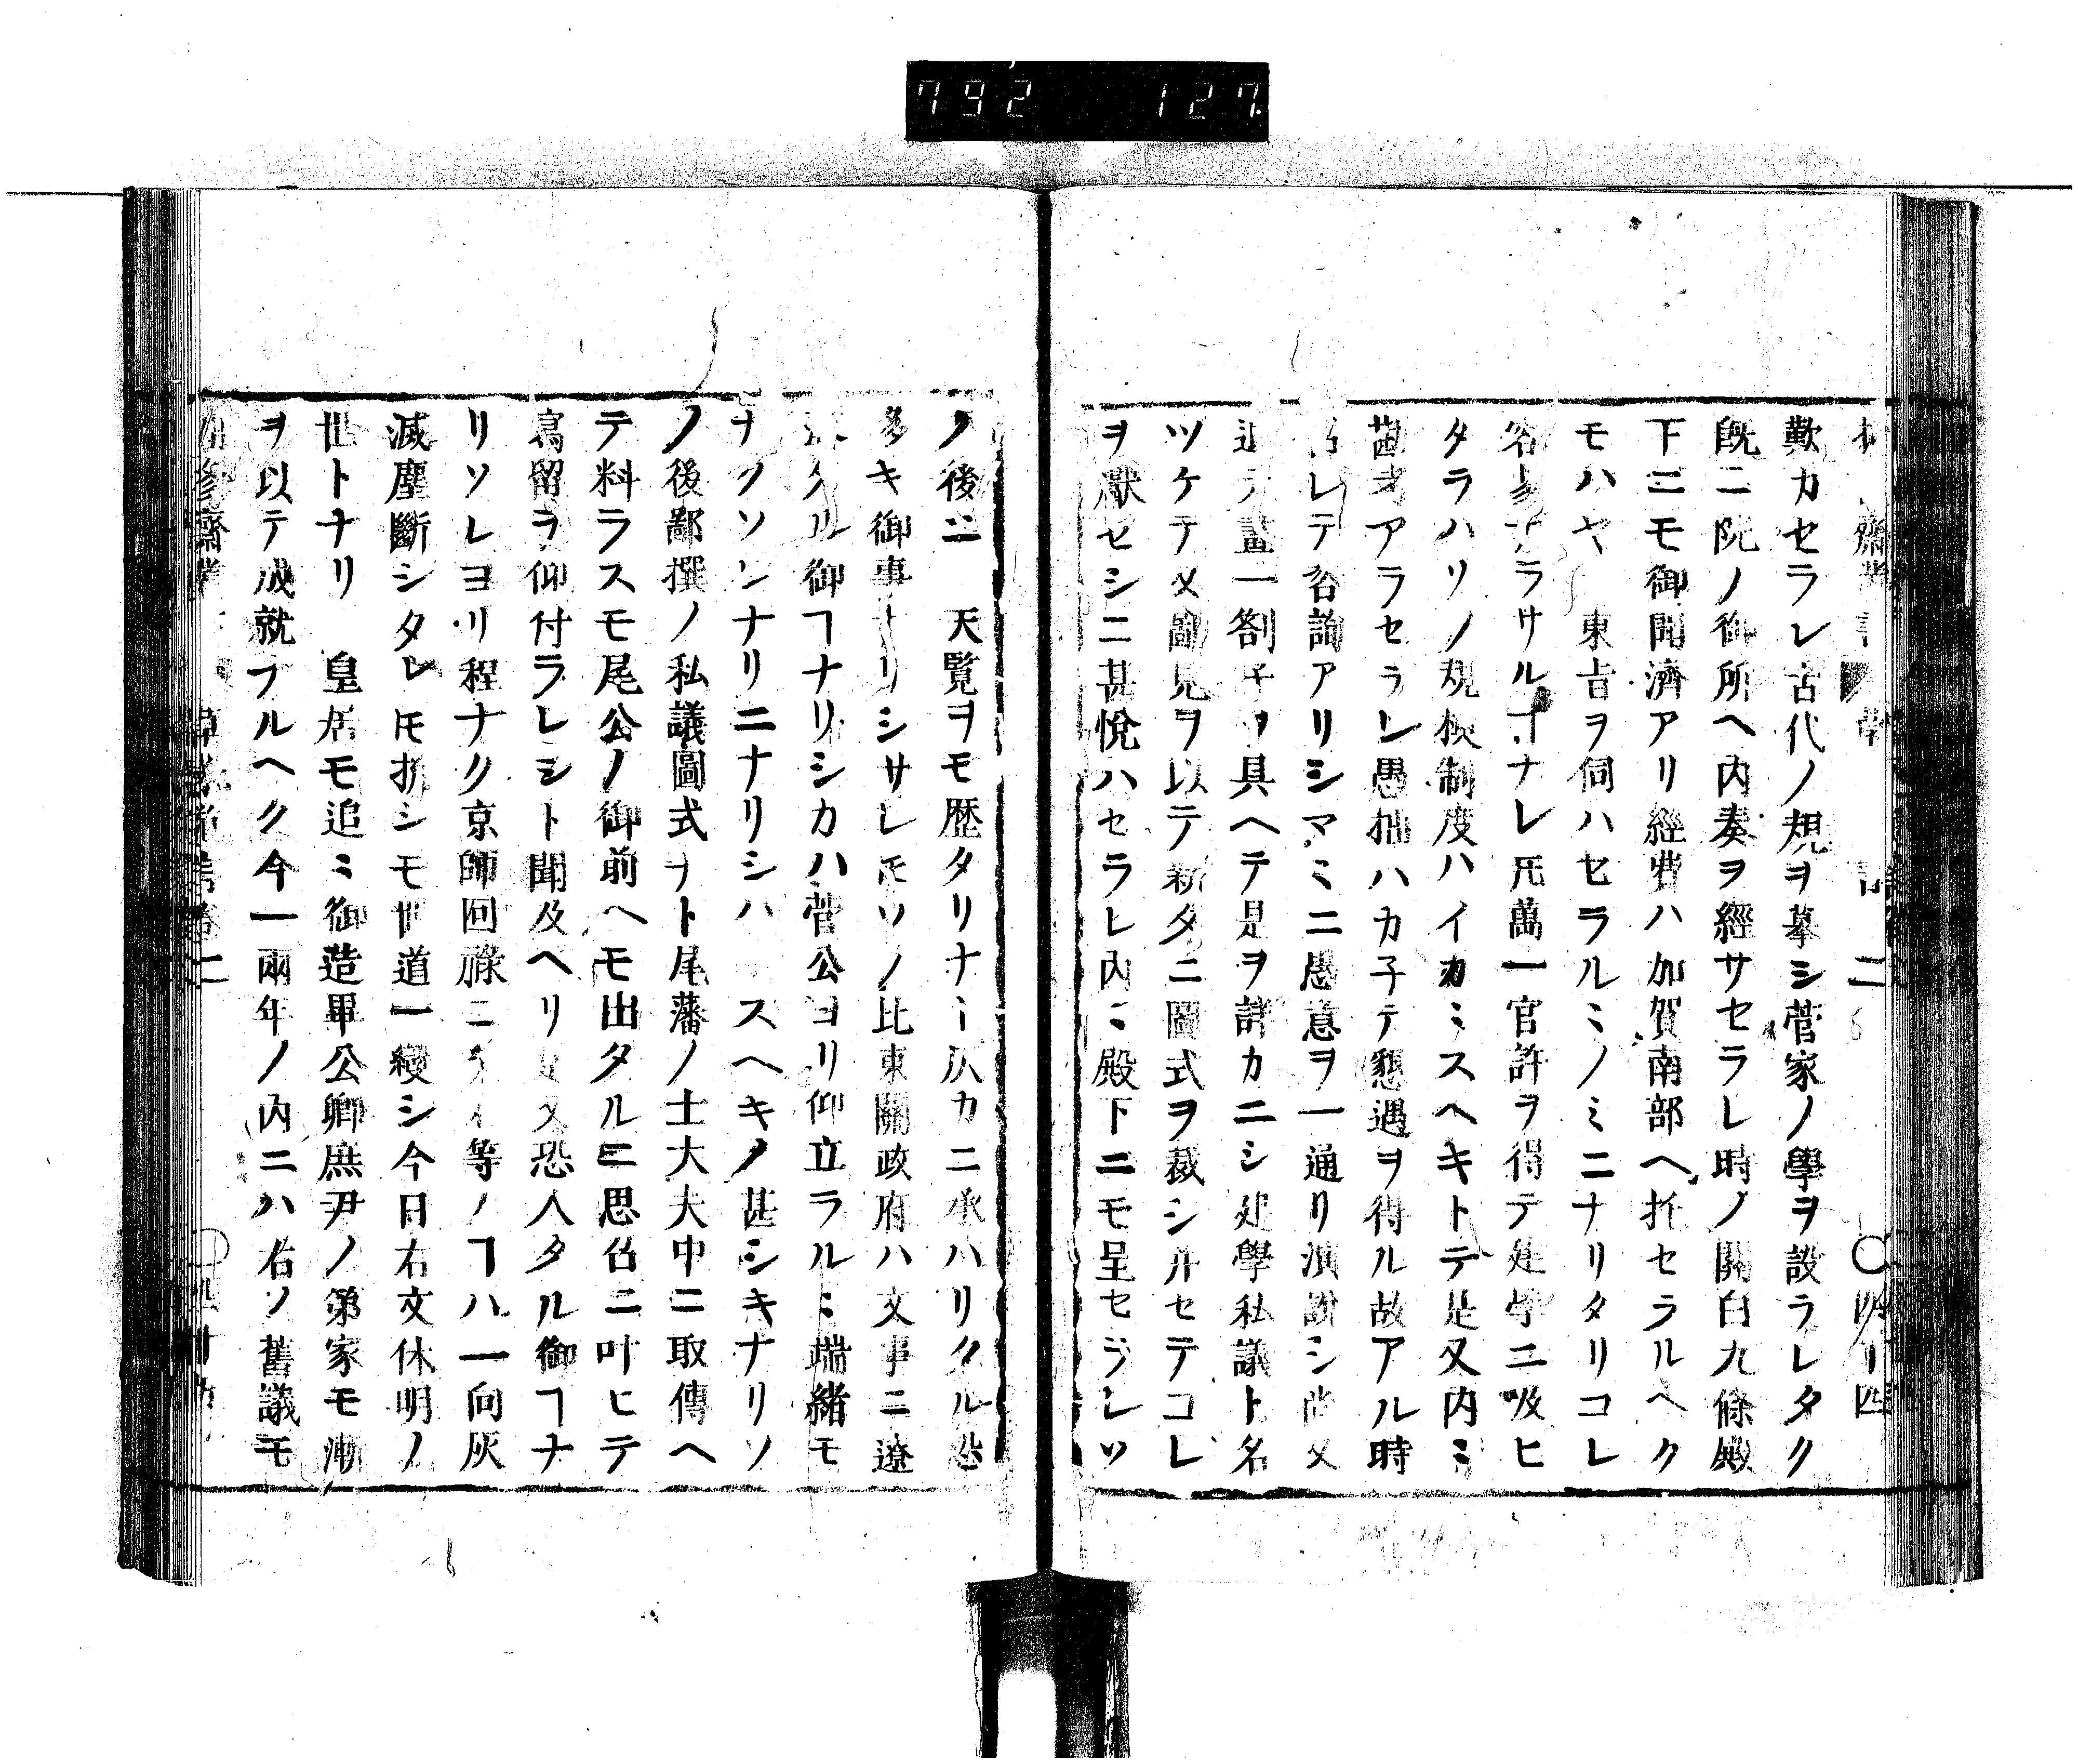 792 127
歎カセラレ古代ノ規ヲ摹シ菅家ノ學ヲ設ラレタク
既ニ院ノ御所ヘ内奏ヲ經サセラレ時ノ關白九條殿
下ニモ御聞濟アリ經費ハ加賀南部ヘ托セラルヘク
モハヤ 東旨ヲ伺ハセラルミノミニナリタリコレ
ラサルヿナレ𪜈萬一官許ヲ得テ建學ニ吸ヒ
タラハリノ規模制度ハイカミスヘキトテ是又内ミ
アラセラレ愚拙ハカ子テ懇遇ヲ得ル故アル時
レテ咨詢アリシマミニ愚意ヲ一通リ演説シ尚又
畫一劄子ヲ具ヘテ是ヲ詳カニシ建學私議ト名
ツケテ又圖見ヲ以テ新タニ圖式ヲ裁シ幷セテコレ
ヲ獻セシニ甚悅ハセラレ内ミ殿下ニモ呈セラレソ
ノ後ニ 天覧ヲモ歴タリナト仄カニ承ハリタル恐
多キ御事ナリシサレ𪜈ソノ比東關政府ハ文事ニ遼
クル御ヿナリシカハ菅公ヨリ仰立ラルミ端緒モ
ナクソンナリニナリシハ スヘキノ甚シキナリソ
ノ後鄙撰ノ私議圖式ヲト尾藩ノ士大夫中ニ取傳ヘ
テ料ラスモ尾公ノ御前ヘモ出タルニ思召ニ叶ヒテ
寫留ヲ仰付ラレシト聞及ヘリ 又恐入タル御ヿナ
リソレヨリ程ナク京師回祿ニ 等ノヿハ一向灰
滅塵斷シタレ𪜈折シモ世道一變シ今日右文休明ノ
世トナリ 皇居モ追ミ御造畢公卿庶尹ノ第家モ漸
ヲ以テ成就フルヘク今一兩年ノ内ニハ右ノ舊議モ